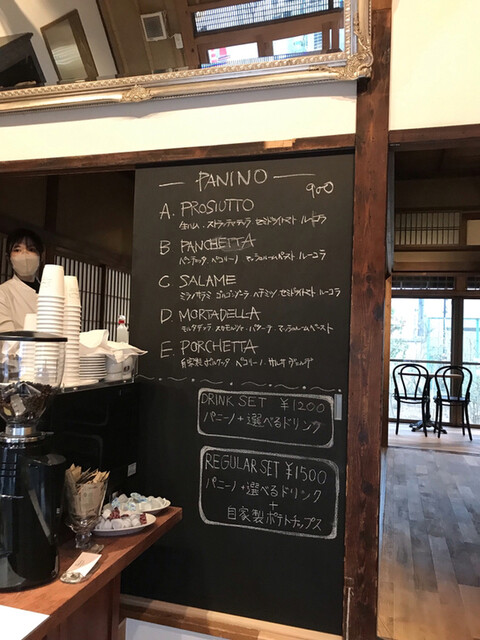 PANINO
900
A. PROSIUTTO
生ハム、ストラッチャテッラ セミドライトマト ルーコラ
B PANCHETTA
パンチェッタ ペコリーノ マッシュルームペースト ルーコラ
C SALAME
ミラノサラミ ゴルゴンゾーラ ハチミツ セミドライトマト ルーコラ
D. MORTADELLA
モルタデッラ スカモルツァ バターナ マッシュルームペースト
E. PORCHETTA
自家製ポルケッタ ペコリーノ サルサヴェルデ
DRINK SET ¥1200
パニーノ+選べるドリンク
REGULAR SET ¥1500
パニーノ+選べるドリンク
+
自家製ポテトチップス